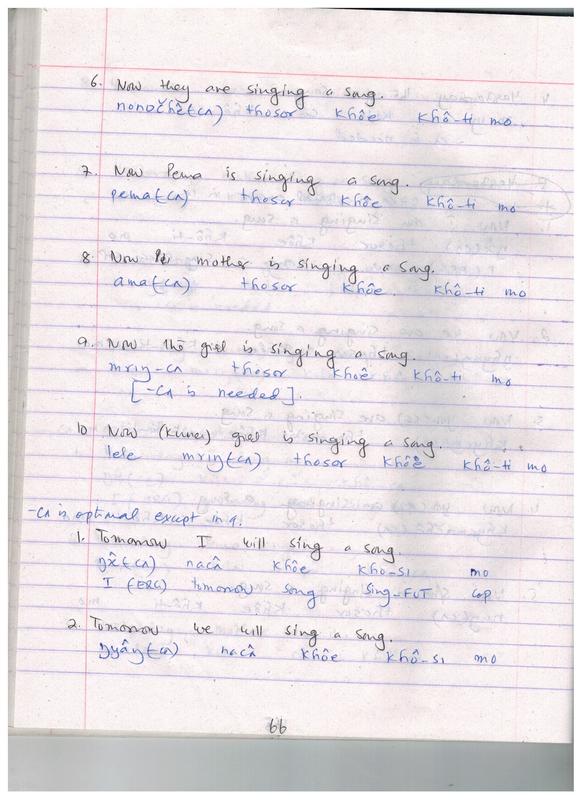 6. Now they are singing a song.
nonočhê(cʌ) thosor khôe khô-ti mo.
7. Now Pema is singing a song.
pema(-cʌ) thosor khôe khô-ti mo
8. Now mother is singing a song.
ama(-cʌ) thosor khôe khô-ti mo
9. Now the girl is singing a song.
mriŋ-cʌ thosor khoê khô-ti mo
[-cʌ is needed].
10 Now (Kunes) girl is singing a song.
lele mriŋ(-cʌ) thosor khôe khô-ti mo
-cʌ is optimal except in 9.
1. Tomorrow I will sing a song
ŋʌ̂(-cʌ) nacʌ̂ khôe kho-si mo
I (ERG) tomorrow song sing-FUT cop
2. Tomorrow we will sing a song.
ŋyâŋ(-cʌ) nacʌ̂ khôe khô-si mo
66